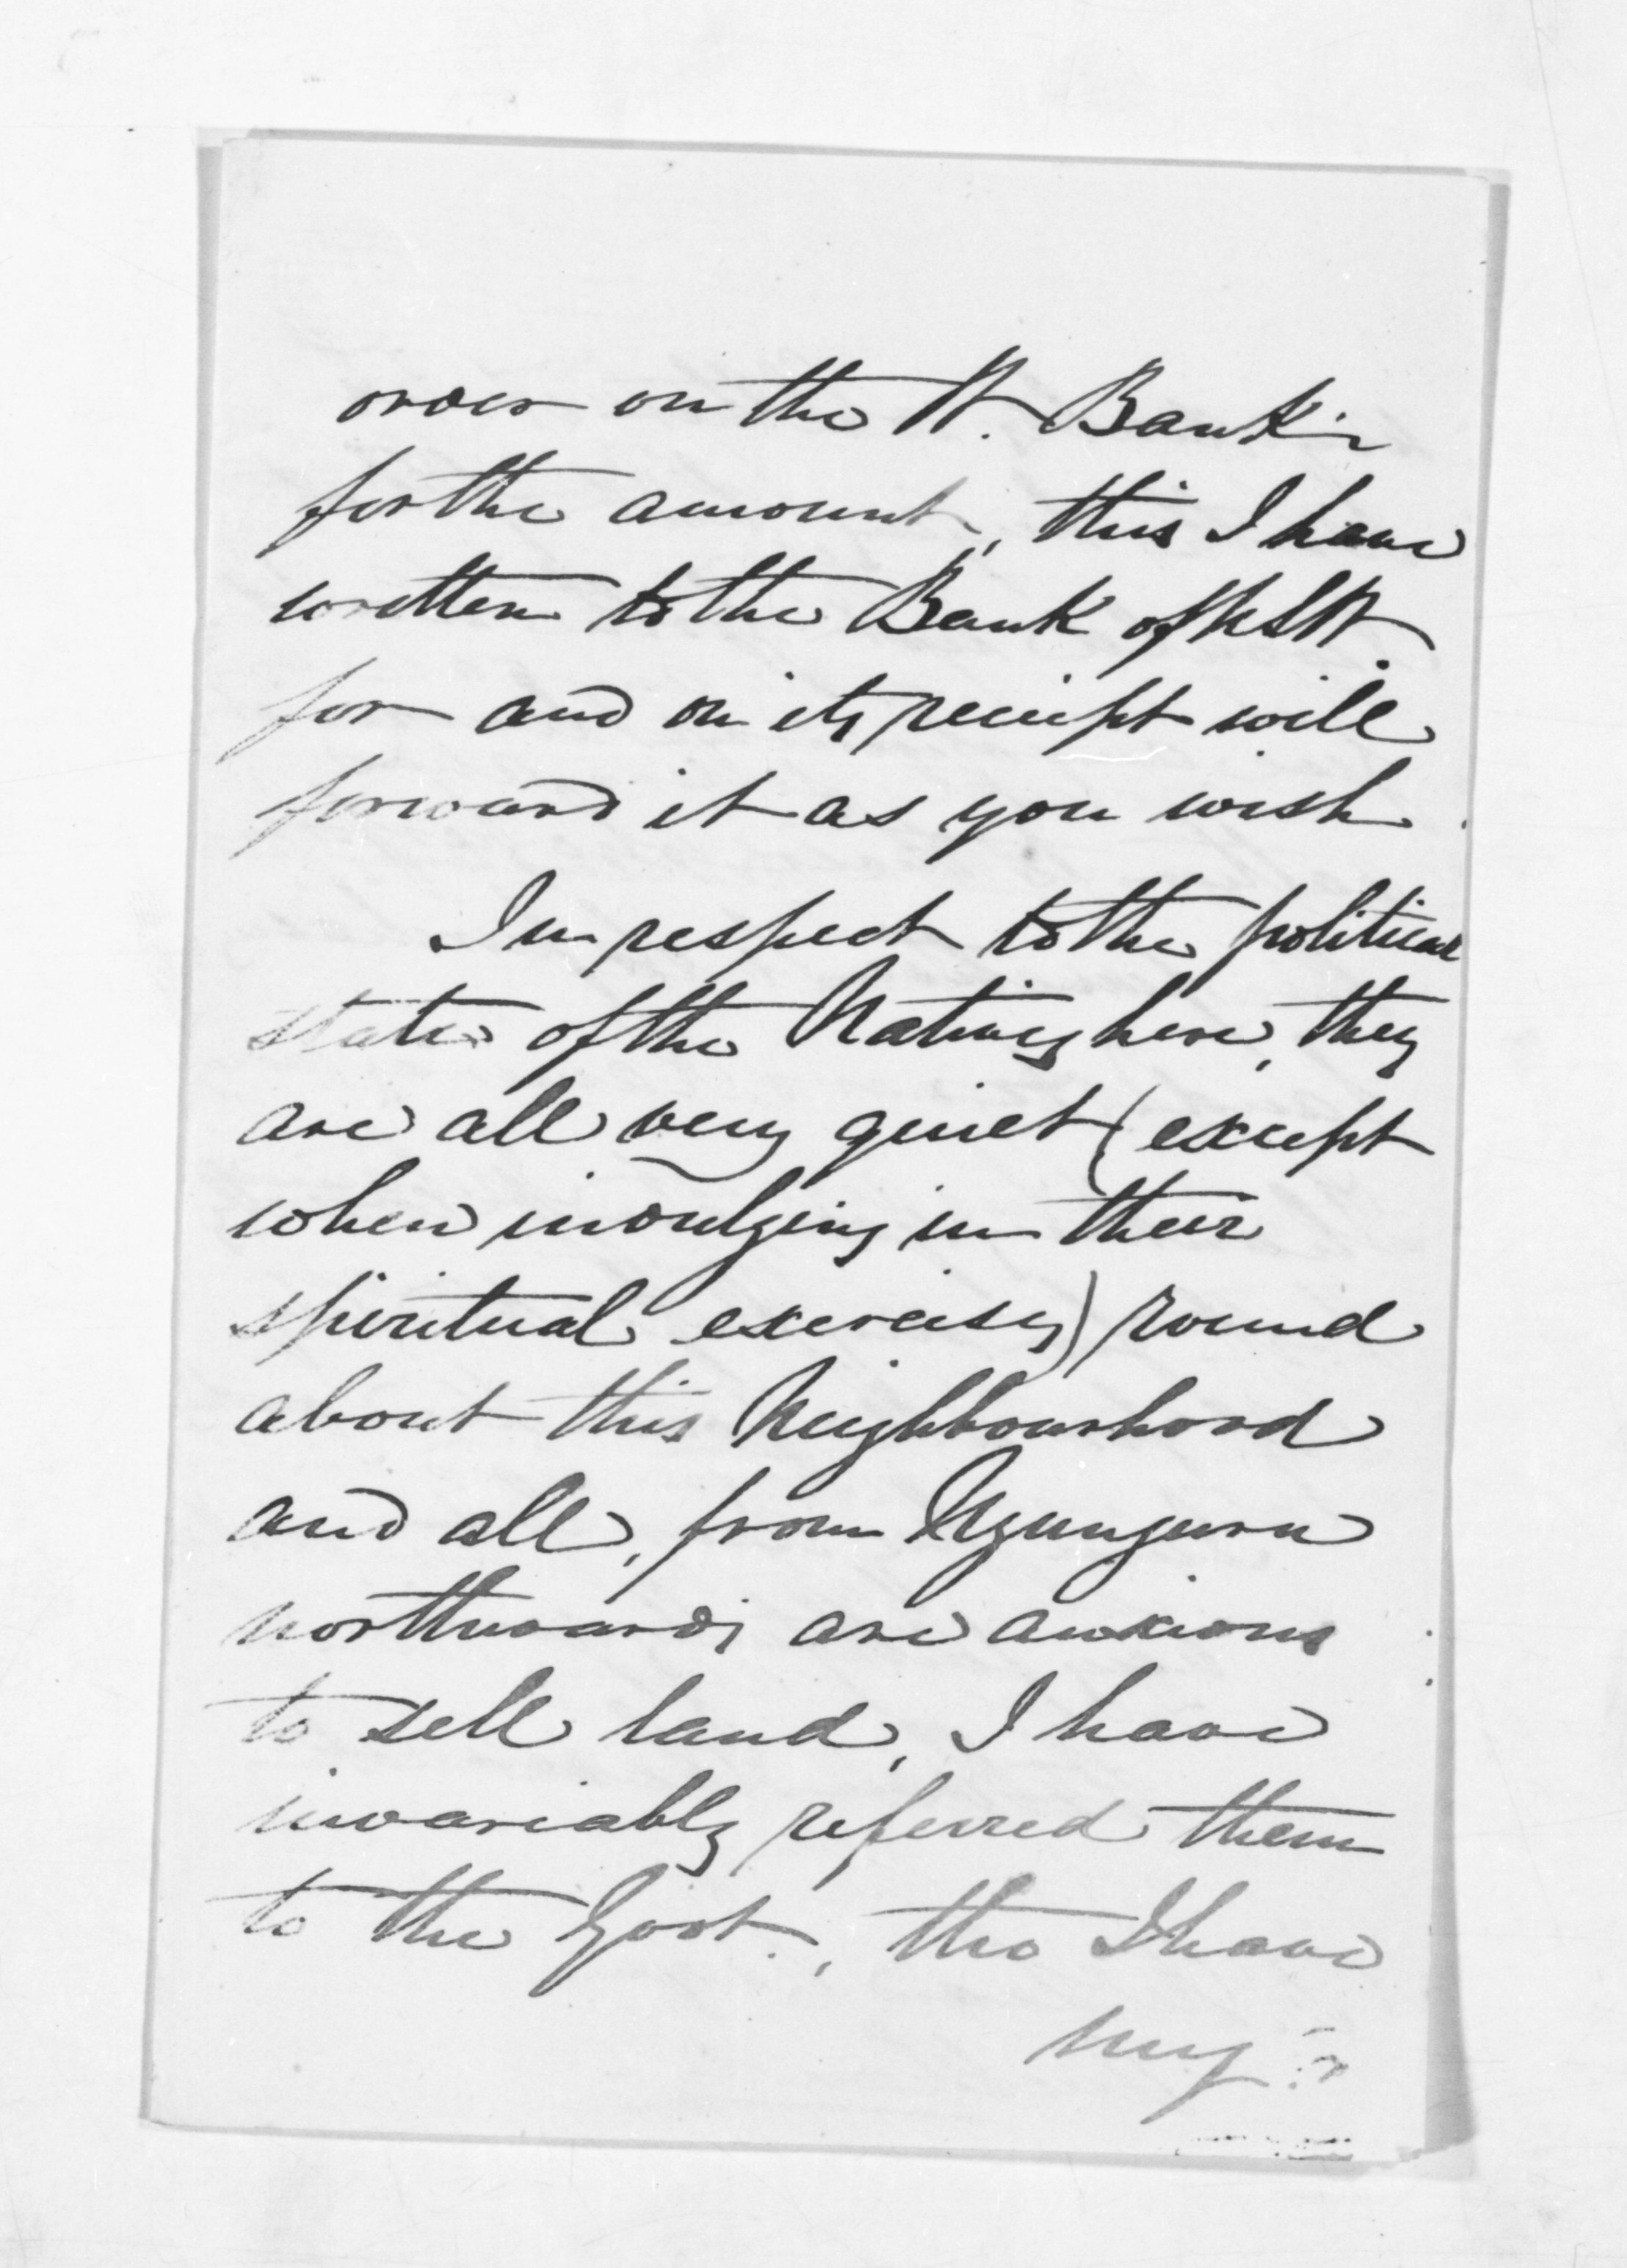 order on the W. Bank
for the amount, this I have
written to the Bank of NSW.
for and on its receipt will
forward it as you wish.
In respect to the political
state of the Natives here, they
are all very quiet (except
when indulging in their
spiritual exercises) round
about this Neighbourhood
and all, from Ngunguru
northwards are anxious
to sell land, I have
invariably referred them
to the Govt., tho I have
my